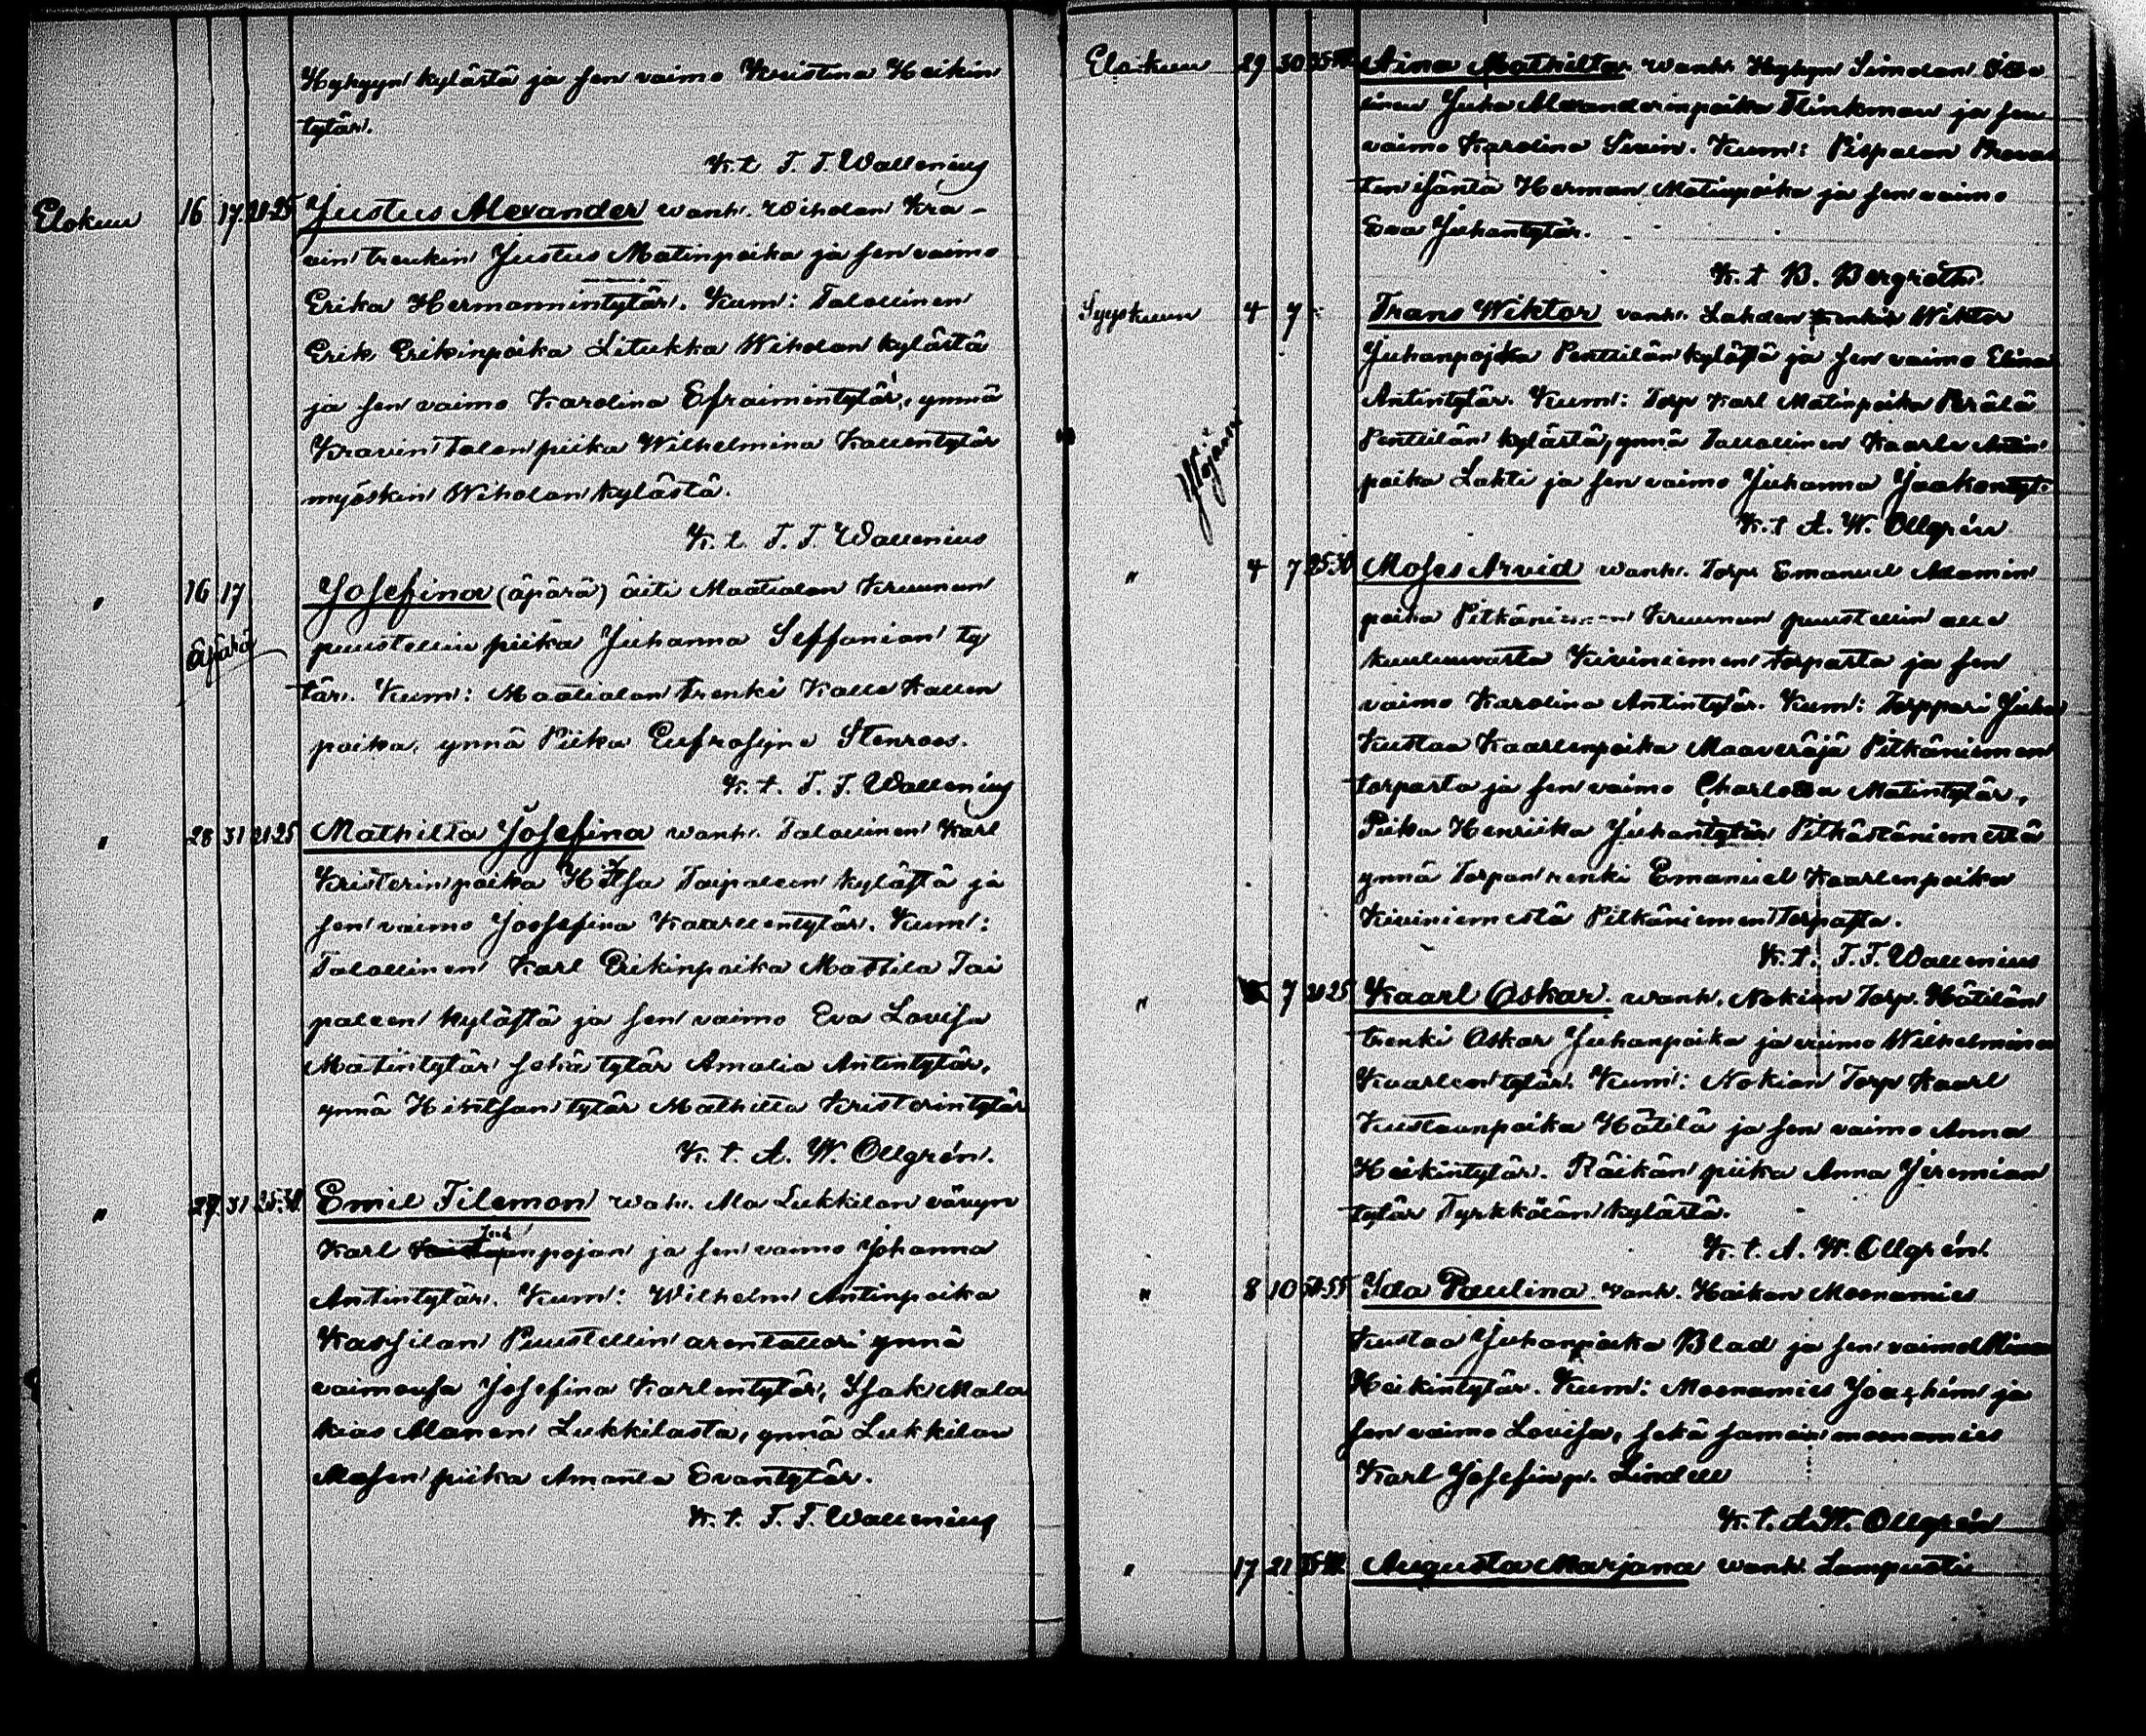 Hyhgyn kylästä ja sen vaimo Kristina Heikin
tytär.
K. t. F. F. Wallenius
Elokuu 16 17 21-25 Justus Alexander wanh. Wiholan Kra-
vin trenkin Justus Matinpoika ja sen vaimo
Erika Hermannintytär. Kum: Talollinen
Erik Erikinpoika Litukka Wiholan kylästä
ja sen vaimo Karolina Efraimintytär, ynnä
Kravin talon piika Wilhelmina Kallentytär
myöskin Wiholan kylästä.
K. t. F. F. Wallenius
" 16 17 Josefina (äpärä) äiti Maatialan Kruunun
äpärä
puustellin piika Juhanna Seffanian ty
tär. Kum: Maatialan trenki Kalle Kallen
poika, ynnä Piika Eufrosyne Stenroos.
K. t. F. F. Wallenius
" 28 31 21-25 Mathilta Josefina wanh. Talollinen Karl
Kristerinpoika Taipaleen kylästä ja
sen vaimo Joosefina Kaarlentytär. Kum:
Talollinen Karl Erikinpoika Mattila Tai
paleen kylästä ja sen vaimo Eva Lovisa
Matintytär sekä tytär Amalia Antintytär,
ynnä Hihtsan tytär Mathilta Kristerintytär
K. t. A. W. Ollgrén.
" 27 31 25-30 Emil Filemon wah. Ala Lukkilan vävyn
Karl Juh
pojan ja sen vaimo Johanna
Antintytär. Kum: Wilhelm Antinpoika
Kassilan Puustellin arentattori ynnä
vaimonsa Josefina Karlentytär, Isak Mala
kias Alanen Lukkilasta, ynnä Lukkilan
Alasen piika Amanta Evantytär.
K. t. F. F. Wallenius
Elokuu 29 30 35-40 Aina Mathilta wanh. Hyhgyn Simolan
Juha Alexanderinpoika Flinkman ja sen
vaimo Karolina Sivin. Kum: Pispalan Provas
tin isäntä Herman Matinpoika ja sen vaimo
Eva Juhantytär.
K. t. B. Bergroth.
Syyskuun 4 7 Frans Wiktor vanh. Lahden trenkin Wiktor
Juhanpoika Penttilän kylästä ja sen vaimo Elina
Antintytär. Kum: Torp Karl Matinpoika Perälä
Penttilän kylästä, ynnä Talollinen Kaarle Antin
poika Lahti ja sen vaimo Juhanna Jaakontyt.
K. t. A. W. Ollgrén
" 4 7 25-30 Moses Arvid wanh. Torp. Emanuel Adamin
poika Pitkäniemen Kruunun puustellin alle
kuuluvasta Kiviniemen torpasta ja sen
vaimo Karolina Antintytär. Kum: Torppari Juha
Kustaa Kaarlenpoika Maaveräjä Pitkäniemen
torpasta ja sen vaimo Charlotta Matintytär,
Piika Henriika Juhantytär Pitkästäniemestä
ynnä Torpan renki Emanuel Kaarlenpoika
Kiviniemestä Pitkäniemen Torpasta.
K. t. F. F. Wallenius
" 7 21-25 Kaarl Oskar wanh. Nokian Torp. Hätilän
trenki Oskar Juhanpoika ja vaimo Wilhelmina
Kaarlentytär. Kum: Nokian Torp Kaarl
Kustaanpoika Hätilä ja sen vaimo Anna
Heikintytär. Räikän piika Anna Jeremian
tytär Tyrkkölän kylästä.
K. t. A. W. Ollgrén.
" 8 10 50-55 Ida Paulina wanh. Haikan Moonamies
Kustaa Juhanpoika Blad ja sen vaimo Miina
Heikintytär. Kum: Moonamies Joachim ja
sen vaimo Lovisa, sekä saman moonamies
Karl Josefinp. Lindell
K. t. A. W. Ollgrén
" 17 21 35-40 Augusta Marjana wanh. Lampusti